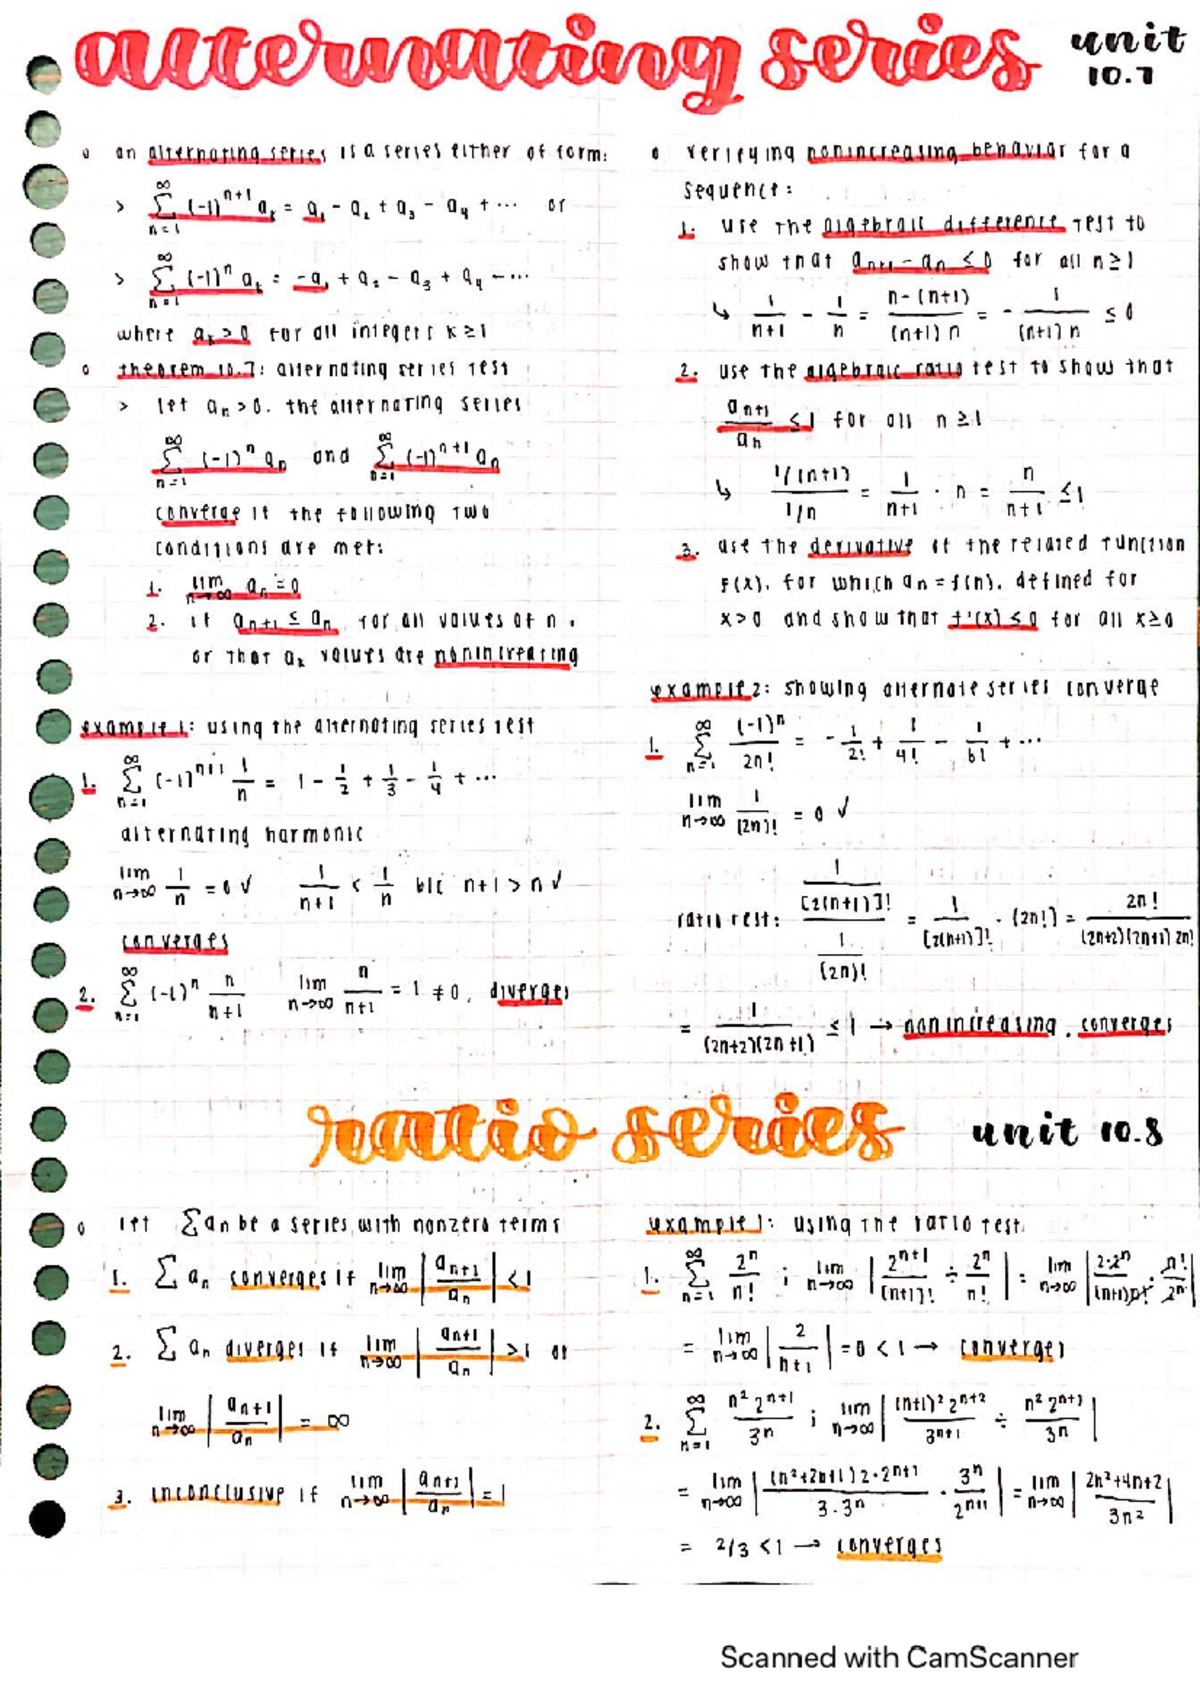 alternating series unit 10.7
o an alternating series is a series either of form:
> ∞ Σ n=1 (-1)^n+1 a_k = a₁ - a₂ + a₃ - a₄ + ... or
> ∞ Σ n=1 (-1)^n a_k = -a₁ + a₂ - a₃ + a₄ - ...
where a_k > 0 for all integers k ≥ 1
o theorem 10.7: alternating series test
> let a_n > 0. the alternating series
∞ Σ n=1 (-1)^n a_n and ∞ Σ n=1 (-1)^n+1 a_n
converge if the following two
conditions are met:
1. lim n→∞ a_n = 0
2. if a_n+1 ≤ a_n for all values of n.
or that a_k values are nonincreasing
example 1: using the alternating series test
1. ∞ Σ n=1 (-1)^n+1 1/n = 1 - 1/2 + 1/3 - 1/4 + ...
alternating harmonic
lim n→∞ 1/n = 0 ✓ 1/n+1 < 1/n b/c n+1 > n ✓
converges
2. ∞ Σ n=1 (-1)^n n/n+1 lim n→∞ n/n+1 = 1 ≠ 0, diverges
o verifying nonincreasing behavior for a
sequence:
1. use the algebraic difference test to
show that a_n+1 - a_n ≤ 0 for all n ≥ 1
↳ 1/n+1 - 1/n = n-(n+1)/(n+1)n = - 1/(n+1)n ≤ 0
2. use the algebraic ratio test to show that
a_n+1/a_n ≤ 1 for all n ≥ 1
↳ 1/(n+1)/1/n = 1/n+1 · n = n/n+1 ≤ 1
3. use the derivative of the related function
f(x), for which a_n = f(n), defined for
x > 0 and show that f'(x) ≤ 0 for all x ≥ 0
example 2: showing alternate series converge
1. ∞ Σ n=1 (-1)^n/2n! = - 1/2! + 1/4! - 1/6! + ...
lim n→∞ 1/(2n)! = 0 ✓
ratio test: 1/[2(n+1)]!/1/(2n)! = 1/[2(n+1)]! · (2n!) = 2n!/(2n+2)(2n+1)2n!
= 1/(2n+2)(2n+1) ≤ 1 → nonincreasing, converges
ratio series unit 10.8
o let Σ a_n be a series with nonzero terms
1. Σ a_n converges if lim n→∞ |a_n+1/a_n| < 1
2. Σ a_n diverges if lim n→∞ |a_n+1/a_n| > 1 or
lim n→∞ |a_n+1/a_n| = ∞
3. inconclusive if lim n→∞ |a_n+1/a_n| = 1
example 1: using the ratio test
1. ∞ Σ n=1 2^n/n! ; lim n→∞ |2^n+1/(n+1)! ÷ 2^n/n!| = lim n→∞ |2·2^n/(n+1)n! · n!/2^n|
= lim n→∞ |2/n+1| = 0 < 1 → converges
2. ∞ Σ n=1 n² 2^n+1/3^n ; lim n→∞ |(n+1)² 2^n+2/3^n+1 ÷ n² 2^n+1/3^n|
= lim n→∞ |(n²+2n+1) 2·2^n+1/3·3^n · 3^n/2^n+1| = lim n→∞ |2n²+4n+2/3n²|
= 2/3 < 1 → converges
Scanned with CamScanner